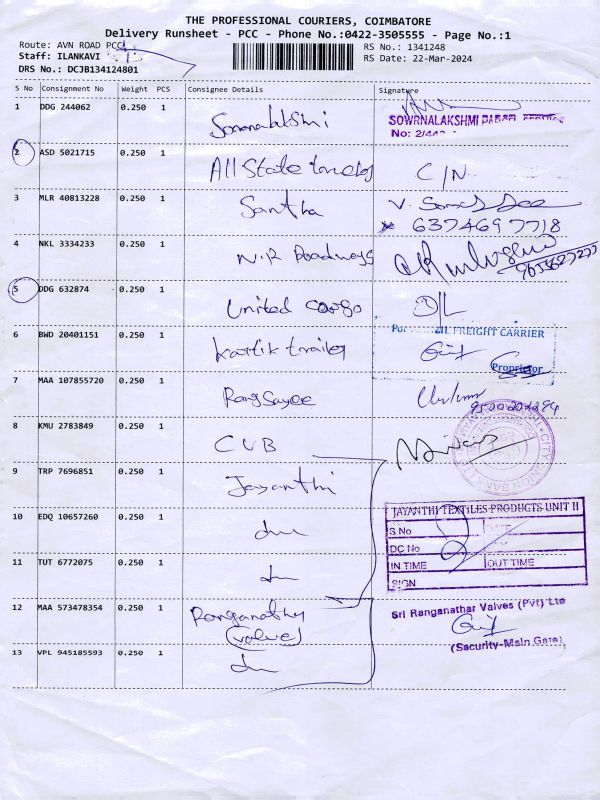 THE PROFESSIONAL COURIERS, COIMBATORE
Delivery Runsheet - PCC - Phone No.:0422-3505555 - Page No.:1
Route: AVN ROAD PCC
RS No.: 1341248
Staff: ILANKAVI
RS Date: 22-Mar-2024
DRS No.: DCJB134124801
S No Consignment No Weight PCS Consignee Details Signature
1 DDG 244062 0.250 1 Sowrnalakshmi
SOWRNALAKSHMI
No:
2 ASD 5021715 0.250 1 All State C/N
3 MLR 40813228 0.250 1 Santha V.
6374697718
4 NKL 3334233 0.250 1 N.R Roadways
5 DDG 632874 0.250 1 United cargo D/L
6 BWD 20401151 0.250 1 Kartik trailer
For FREIGHT CARRIER
Proprietor
7 MAA 107855720 0.250 1 RangSayee
8 KMU 2783849 0.250 1 CUB
9 TRP 7696851 0.250 1 Jayanthi
JAYANTHI TEXTILES PRODUCTS UNIT II
S No DATE
10 EDQ 10657260 0.250 1
DC No
11 TUT 6772075 0.250 1
IN TIME OUT TIME
SIGN
12 MAA 573478354 0.250 1 Ranganathar
(valve)
Sri Ranganathar Valves (Pvt) Lte
(Security-Main Gate)
13 VPL 945185593 0.250 1